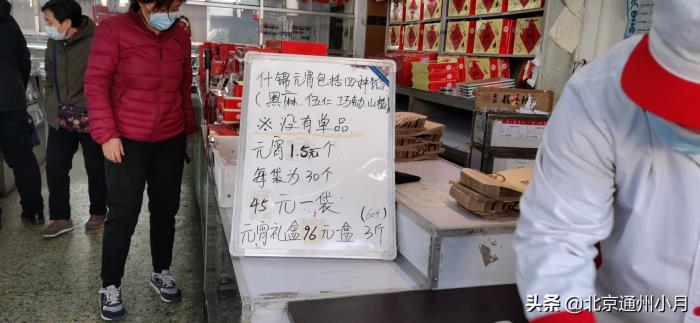 什锦元宵包括四种馅
(黑麻.伍仁.巧力.山楂)
※没有单品
元宵1.5元个
每袋为30个
45元一袋
(60个)
元宵礼盒96元一盒 3斤
头条 @北京通州小月